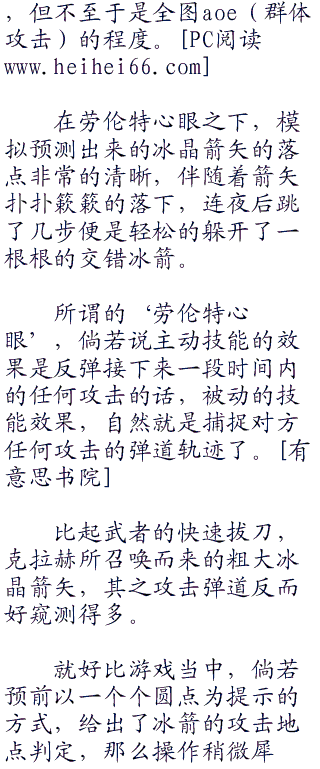 ，但不至于是全图aoe（群体
攻击）的程度。[PC阅读
www.heihei66.com]
在劳伦特心眼之下，模
拟预测出来的冰晶箭矢的落
点非常的清晰，伴随着箭矢
扑扑簌簌的落下，连夜后跳
了几步便是轻松的躲开了一
根根的交错冰箭。
所谓的‘劳伦特心
眼’，倘若说主动技能的效
果是反弹接下来一段时间内
的任何攻击的话，被动的技
能效果，自然就是捕捉对方
任何攻击的弹道轨迹了。[有
意思书院]
比起武者的快速拔刀，
克拉赫所召唤而来的粗大冰
晶箭矢，其之攻击弹道反而
好窥测得多。
就好比游戏当中，倘若
预前以一个个圆点为提示的
方式，给出了冰箭的攻击地
点判定，那么操作稍微犀